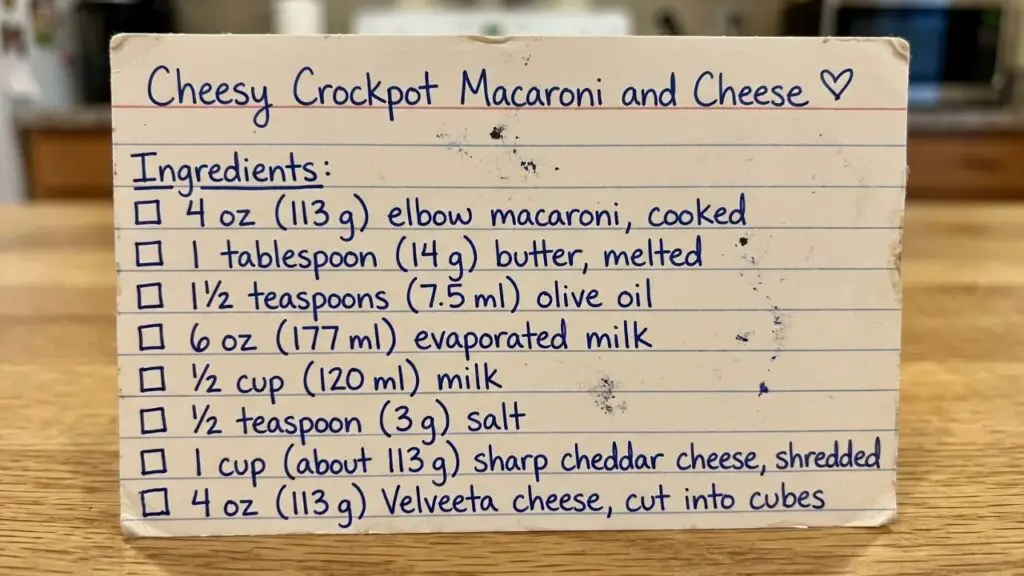 Cheesy Crockpot Macaroni and Cheese ♡
Ingredients:
☐ 4 oz (113 g) elbow macaroni, cooked
☐ 1 tablespoon (14 g) butter, melted
☐ 1½ teaspoons (7.5 ml) olive oil
☐ 6 oz (177 ml) evaporated milk
☐ ½ cup (120 ml) milk
☐ ½ teaspoon (3 g) salt
☐ 1 cup (about 113 g) sharp cheddar cheese, shredded
☐ 4 oz (113 g) Velveeta cheese, cut into cubes